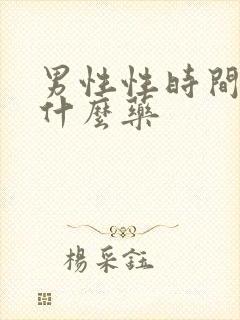 男性性時間
什麼藥
楊采鈺